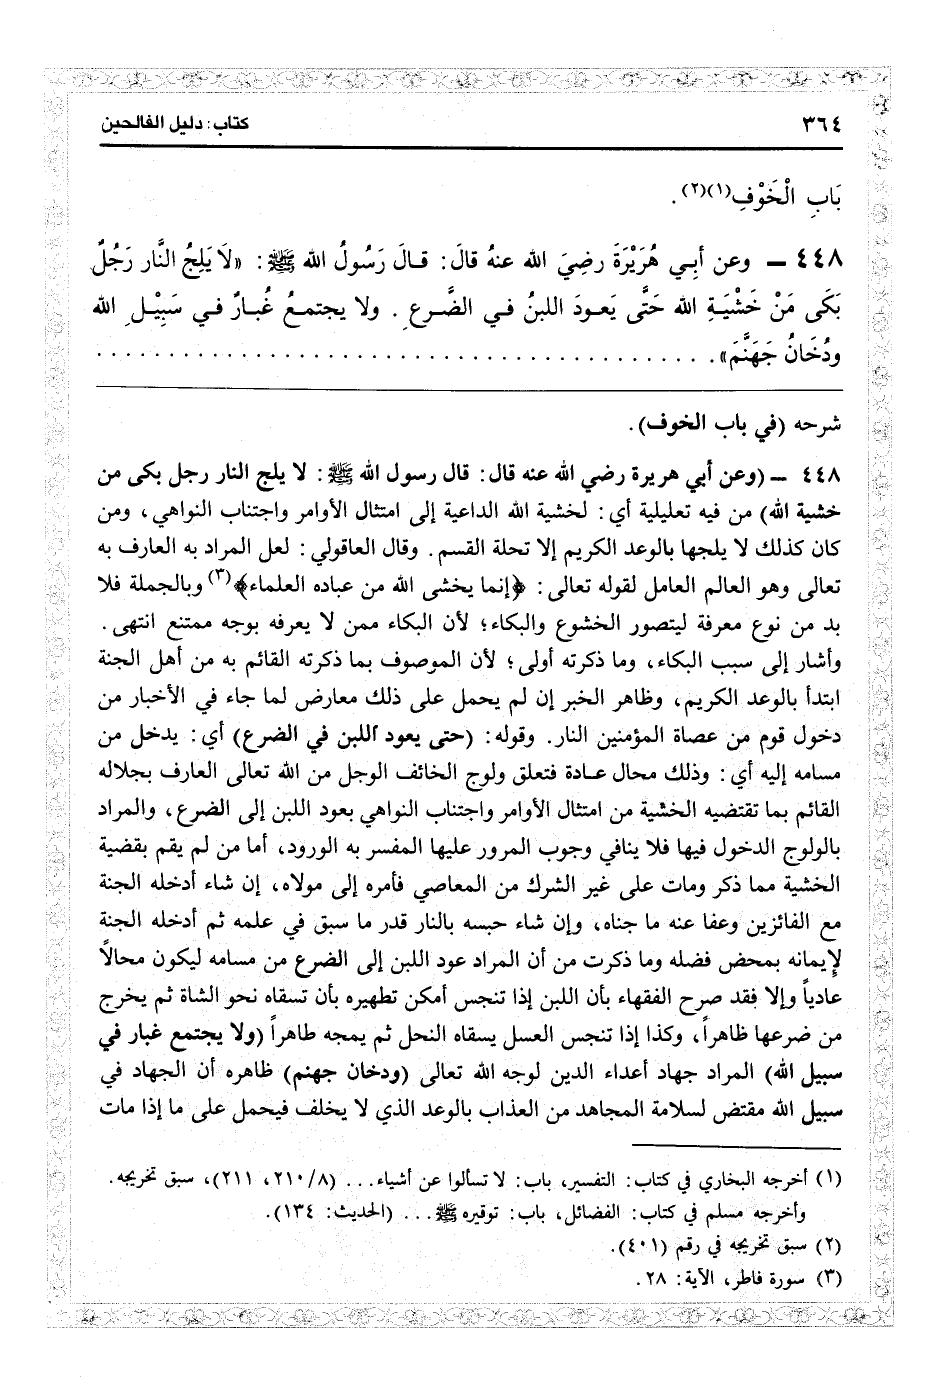 ٣٦٤ كتاب: دليل الفالحين
بَابِ الْخَوْفِ(١)(٢).
٤٤٨ – وعن أبِي هُرَيْرَةَ رضِيَ الله عنهُ قالَ: قالَ رَسُولُ الله ﷺ: «لَا يَلِجُ النَّار رَجُلٌ
بَكَى مَنْ خَشْيَةِ الله حَتَّى يَعودَ اللبنُ في الضَّرعِ. ولا يجتمعُ غُبارٌ في سَبِيْلِ الله
ودُخَانُ جَهَنَّمَ». . . . . . . . . . . . . . . . . . . . . . . . . . . . . . . . . . . . . . . . . .
شرحه (في باب الخوف).
٤٤٨ – (وعن أبي هريرة رضي الله عنه قال: قال رسول الله ﷺ: لا يلج النار رجل بكى من
خشية الله) من فيه تعليلية أي: لخشية الله الداعية إلى امتثال الأوامر واجتناب النواهي، ومن
كان كذلك لا يلجها بالوعد الكريم إلا تحلة القسم. وقال العاقولي: لعل المراد به العارف به
تعالى وهو العالم العامل لقوله تعالى: ﴿إنما يخشى الله من عباده العلماء﴾(٣) وبالجملة فلا
بد من نوع معرفة ليتصور الخشوع والبكاء؛ لأن البكاء ممن لا يعرفه بوجه ممتنع انتهى.
وأشار إلى سبب البكاء، وما ذكرته أولى؛ لأن الموصوف بما ذكرته القائم به من أهل الجنة
ابتدأ بالوعد الكريم، وظاهر الخبر إن لم يحمل على ذلك معارض لما جاء في الأخبار من
دخول قوم من عصاة المؤمنين النار. وقوله: (حتى يعود اللبن في الضرع) أي: يدخل من
مسامه إليه أي: وذلك محال عادة فتعلق ولوج الخائف الوجل من الله تعالى العارف بجلاله
القائم بما تقتضيه الخشية من امتثال الأوامر واجتناب النواهي بعود اللبن إلى الضرع، والمراد
بالولوج الدخول فيها فلا ينافي وجوب المرور عليها المفسر به الورود، أما من لم يقم بقضية
الخشية مما ذكر ومات على غير الشرك من المعاصي فأمره إلى مولاه، إن شاء أدخله الجنة
مع الفائزين وعفا عنه ما جناه، وإن شاء حبسه بالنار قدر ما سبق في علمه ثم أدخله الجنة
لإيمانه بمحض فضله وما ذكرت من أن المراد عود اللبن إلى الضرع من مسامه ليكون محالاً
عادياً وإلا فقد صرح الفقهاء بأن اللبن إذا تنجس أمكن تطهيره بأن تسقاه نحو الشاة ثم يخرج
من ضرعها ظاهراً، وكذا إذا تنجس العسل يسقاه النحل ثم يمجه طاهراً (ولا يجتمع غبار في
سبيل الله) المراد جهاد أعداء الدين لوجه الله تعالى (ودخان جهنم) ظاهره أن الجهاد في
سبيل الله مقتض لسلامة المجاهد من العذاب بالوعد الذي لا يخلف فيحمل على ما إذا مات
(١) أخرجه البخاري في كتاب: التفسير، باب: لا تسألوا عن أشياء... (٢١٠/٨، ٢١١)، سبق تخريجه.
وأخرجه مسلم في كتاب: الفضائل، باب: توقيره ﷺ... (الحديث: ١٣٤).
(٢) سبق تخريجه في رقم (٤٠١).
(٣) سورة فاطر، الآية: ٢٨.